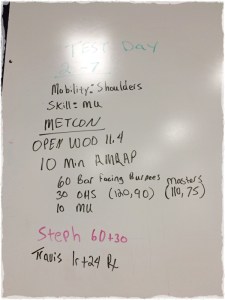 TEST Day
Mobility: Shoulders
Skill: MU
METCON
OPEN WOD 11.4
10 Min AMRAP
60 Bar Facing Burpees
30 OHS (120, 90) Masters (110, 75)
10 MU
Steph 60+30
Travis 1r+24 Rx